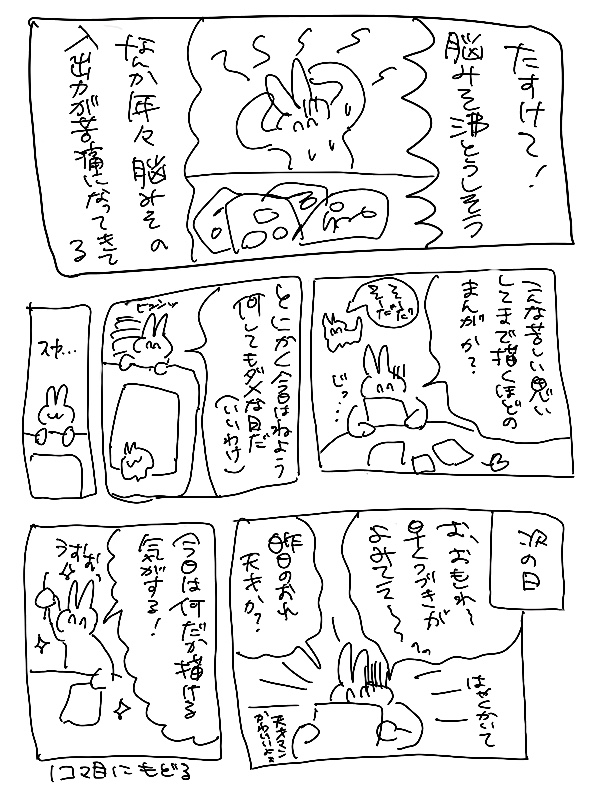 たすけて!
脳みそ沸とうしそう
なんか年々脳みその
入出力が苦痛になってきて
る
こんな苦しい思い
してまで描くほどの
まんがか?
そーだそーだ!
じっ…
とにかく今日はねよう
何してもダメな日だ
(いいわけ)
ビョンッ
スヤ…
次の日
お、おもれ〜
早くつづきが
よみてえ〜〜っ
昨日のおれ
天才か?
はやくかいて
天才マン
かわいいよぉ
今日は何だか描ける
気がする!
うすお
1コマ目にもどる